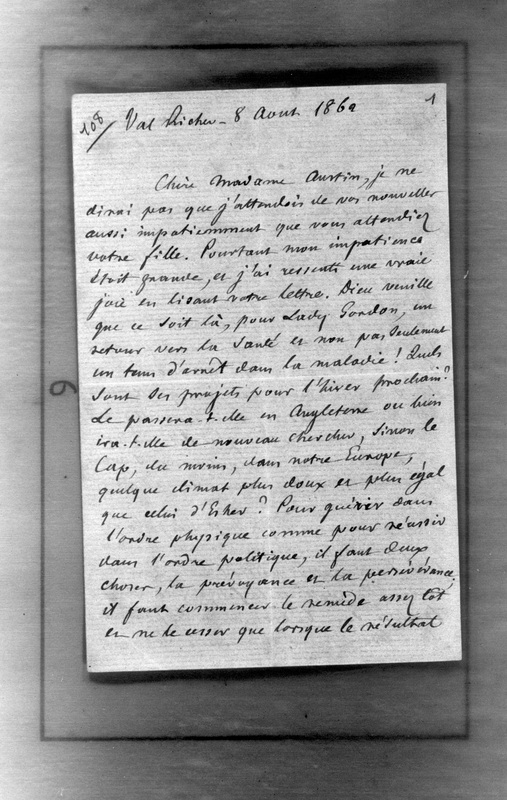 108/
1
Val Richer - 8 Aout 1862
Chère Madame Austin, je ne
dirai pas que j'attendois de vos nouvelles
aussi impatiemment que vous attendiez
votre fille. Pourtant mon impatience
étoit grande, et j'ai ressenti une vraie
joie en lisant votre lettre. Dieu veuille
que ce soit là, pour Lady Gordon, un
retour vers la santé et non pas seulement
un tems d'arrêt dans la maladie! Quels
sont ses projets pour l'hiver prochain?
Le passera-t-elle en Angleterre ou bien
ira-t-elle de nouveau chercher, sinon le
Cap, du moins, dans notre Europe,
quelque climat plus doux et plus égal
que celui d'Esher? Pour guérir dans
l'ordre physique comme pour réussir
dans l'ordre politique, il faut deux
choses, la prévoyance et la persévérance;
il faut commencer le remède assez tôt
et ne le cesser que lorsque le résultat
9